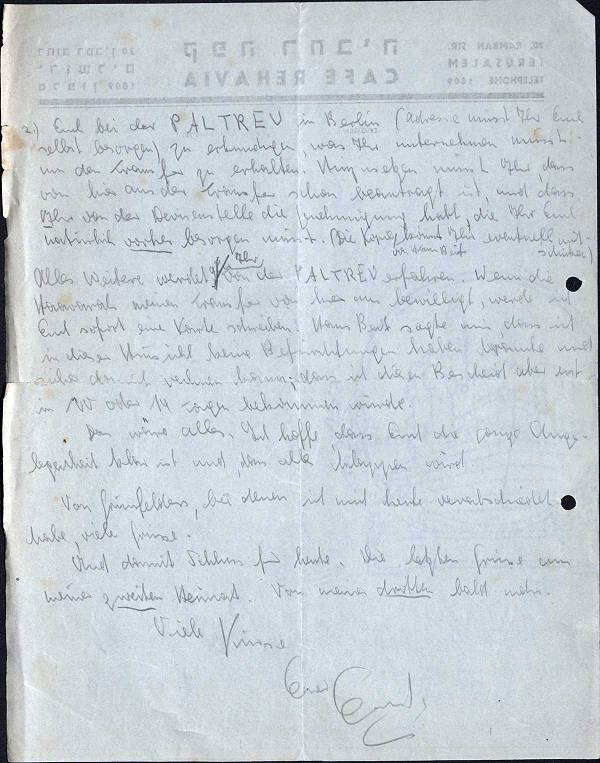 20, RAMBAN STR.
JERUSALEM
TELEPHONE 1809
קפה רחביה
CAFE REHAVIA
רחוב רמבן 20
ירושלים
טלפון 1809
2.) Euch bei der PALTREU in Berlin (Adresse müsst Ihr Euch
selbst besorgen) zu erkundigen, was Ihr unternehmen müsst
um den Transfer zu erhalten. müsst Ihr, dass
von hier aus der Transfer schon beantragt ist, und dass
Ihr von der Devisenstelle die Genehmigung habt, die Ihr Euch
natürlich vorher besorgen müsst. (Die könnt Ihr eventuell mit
schicken)
Alles Weitere werdet Ihr von der PALTREU erfahren. Wenn die
Haavarah meinen Transfer von hier aus bewilligt, werde ich
Euch sofort eine Karte schreiben. Hans Bert sagte mir, dass ich
in dieser Hinsicht keine Befürchtungen haben brauche und
sicher damit rechnen kann, dass ich diesen Bescheid aber erst
in 10 oder 14 Tagen bekommen würde.
Das wäre alles. Ich hoffe dass Euch die ganze Ange-
legenheit klar ist und, dass alles klappen wird
Von Grünfelders, bei denen ich mich heute verabschiedet
habe, viele Grüsse.
Und damit Schluss für heute. Die letzten Grüsse aus
meiner zweiten Heimat. Von meiner dritten bald mehr.
Viele Grüsse
Euer